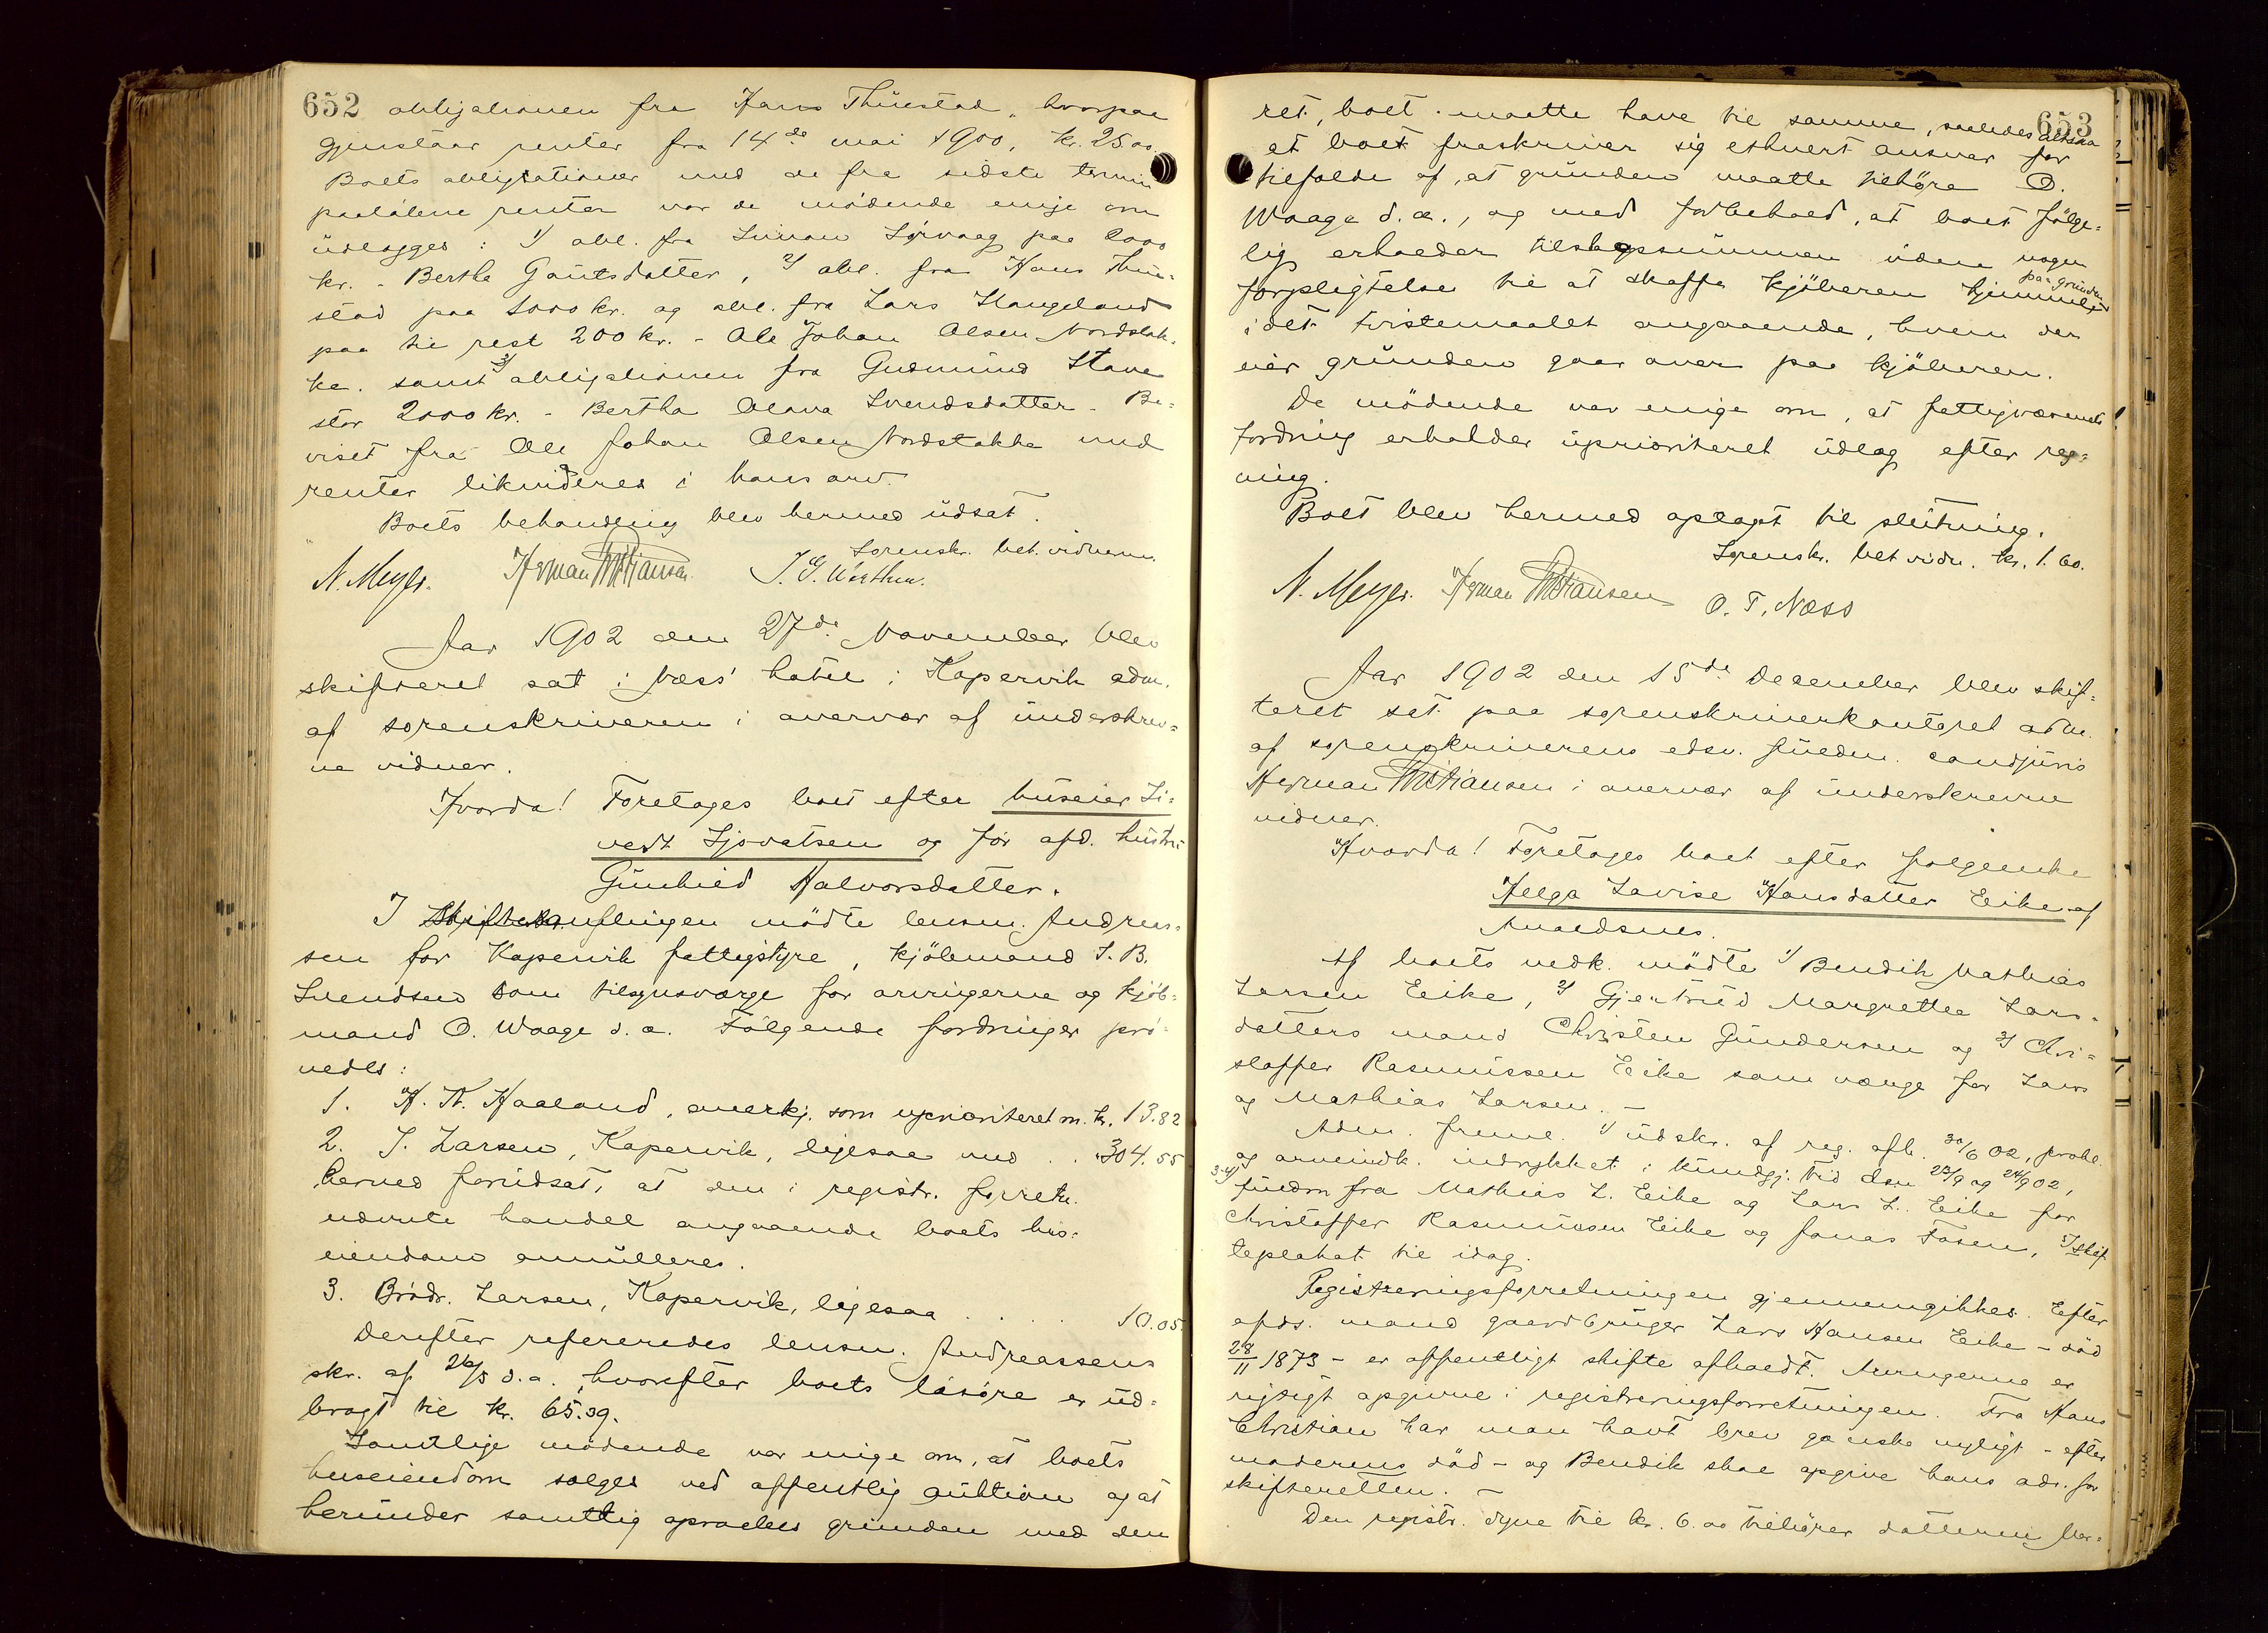 652
obligationen fra Hans Thuestad, hvorpaa
gjenstaar renter fra 14de mai 1900, kr. 25.00.
Boets obligationer med de fra sidste termin
paaløbne renter var de mødende enige om
udlægges: 1/ obl. fra Simon Sørvaag paa 2000
kr. - Berthe Gautsdatter, 2/ obl. fra Hans Thue=
stad paa 1000 kr. og obl. fra Lars Stangeland
paa til rest 200 kr. - Ole Johan Olsen Nordstok=
ke. samt 3/ obligationen fra Gudmund Stave
stor 2000 kr. - Bertha Olava Svendsdatter. Be=
viset fra Ole Johan Olsen Nordstokke med
renter likvideres i hans arv.
Boets behandling blev hermed udsat.
Sorenskr. bet. vidnerne.
N. Meyer. Herman Christiansen J. G. Wærthun.
Aar 1902 den 27de November blev
skifteret sat i Næss' hotel i Kopervik adm.
af sorenskriveren i overvær af underskrev=
ne vidner.
Hvorda! Foretages boet efter huseier Si=
vert Sjovatsen og før afd. hustru
Gunhild Halvorsdatter.
I skiftesamlingen mødte lensm. Andreas=
sen for Kopervik fattigstyre, kjøbmand S. B.
Svendsen som tilsynsværge for arvingerne og kjøb=
mand O. Waage d. æ. Følgende fordringer prø=
vedes:
1. H. N. Haaland, anerkj. som uprioriteret m. kr. 13.82
2. J. Larsen, Kopervik, ligesaa med . . 304.55
herved forudsat, at den i registr. forretn.
nævnte handel angaaende boets hus=
eiendom annulleres.
3. Brødr. Larsen, Kopervik, ligesaa . . . . 10.05.
Derefter refereredes lensm. Andreassens
skr. af 26/5 d. a., hvorefter boets løsøre er ud=
bragt til kr. 65.39.
Samtlige mødende var enige om, at boets
huseiendom sælges ved offentlig auktion og at
herunder samtlig opraabes grunden med den
653
ret, boet maatte have til samme, saaledes altsaa
at boet fraskriver sig ethvert ansvar for
tilfælde af, at grunden maatte tilhøre O.
Waage d. æ., og med forbehold, at boet følge=
lig erholder tilslagssummen uden nogen
forpligtelse til at skaffe kjøberen hjemmel paa grunden
idet tvistemaalet angaaende, hvem der
eier grunden gaar over paa kjøberen.
De mødende var enige om, at fattigvæsenets
fordring erholder uprioriteret udlæg efter reg=
ning.
Boet blev hermed oplagt til slutning.
Sorenskr. bet vidn. kr. 1.60.
N. Meyer. Herman Christiansen O. T. Næss
Aar 1902 den 15de December blev skif=
teret sat paa sorenskriverkontoret adm.
af sorenskriverens edsv. fuldm. cand. juris
Herman Christiansen i overvær af underskrevne
vidner.
Hvorda! Foretages boet efter følgende
Helga Lavise Hansdatter Eike af
Avaldsnes.
Af boets vedk. mødte 1/ Bendik Mathias
Larsen Eike, 2/ Gjertrud Margrethe Lars=
datters mand Christen Gundersen og 3/ Chri=
stoffer Rasmussen Eike som værge for Lars
og Mathias Larsen. -
Adm. freml. 1/ udskr. af reg. afh. 30/6 02, prokl.
og arveindk. indrykket i kundgj. tid. den 23/9 og 24/9 02,
3-4/ fuldm fra Mathias L. Eike og Lars L. Eike for
Christoffer Rasmussen Eike og Jonas Fosen, 5/ skif
teplakat til idag.
Registreringsforretningen gjennemgikkes. Efter
afds. mand gaardbruger Lars Hansen Eike - død
28/11 1873 - er offentligt skifte afholdt. Arvingerne er
rigtigt opgivne i registreringsforretningen. Fra Hans
Christian har man havt brev ganske nyligt - efter
moderens død - og Bendik skal opgive hans adr. for
skifteretten. -
Den registr. dyne til kr. 6.00 tilhører datteren Mar=